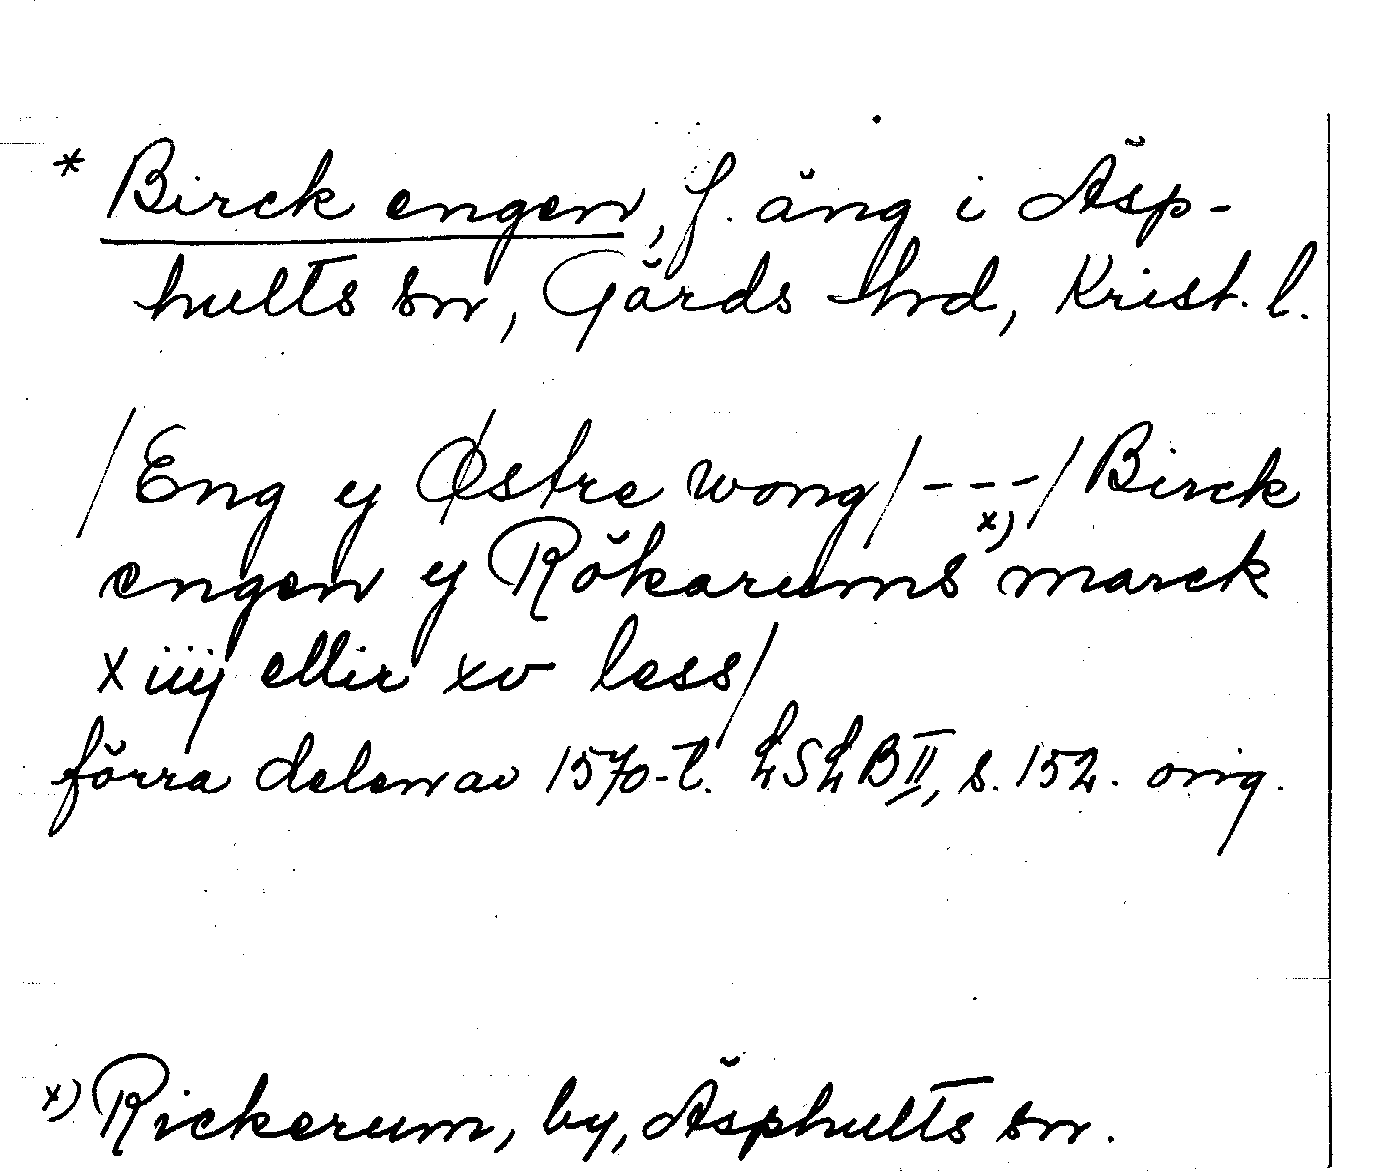 * Birck engen, f. äng i Äsp-
hults sn, Gärds hrd, Krist. l.
/Eng y Østre wong/---/Birck
engen y Rökarums x) marck
x iiij ellir xv less/
förra delen av 1570-t. LSLB II, s. 152. orig.
x) Rickerum, by, Äsphults sn.